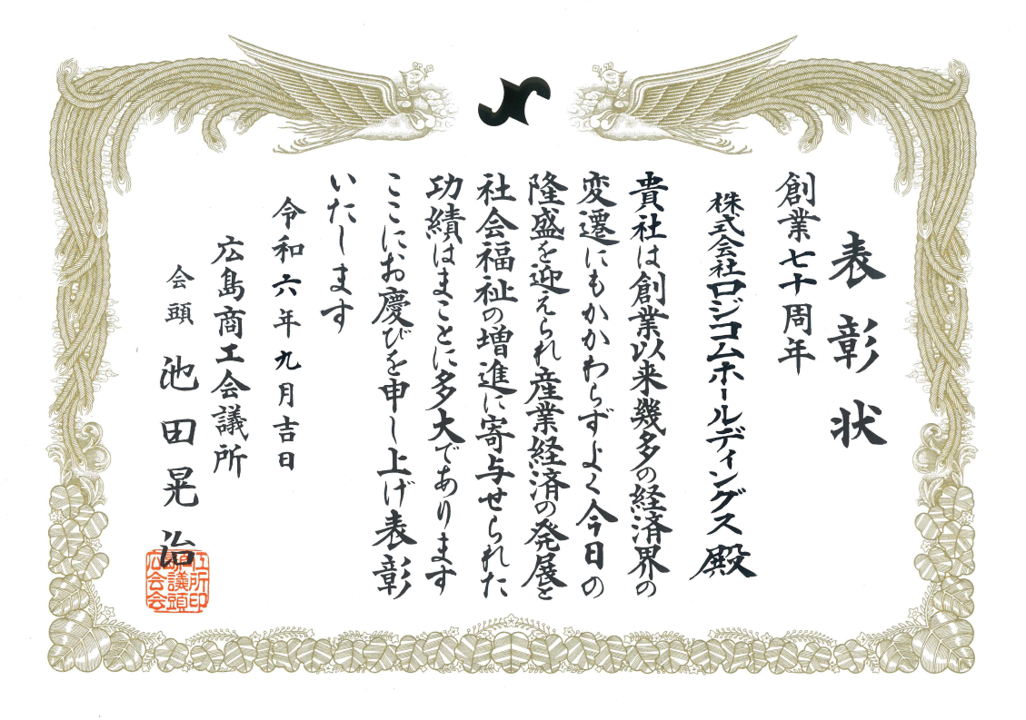 表彰状
創業七十周年
株式会社ロジコムホールディングス殿
貴社は創業以来幾多の経済界の
変遷にもかかわらずよく今日の
隆盛を迎えられ産業経済の発展と
社会福祉の増進に寄与せられた
功績はまことに多大であります
ここにお慶びを申し上げ表彰
いたします
令和六年九月吉日
広島商工会議所
会頭 池田晃治